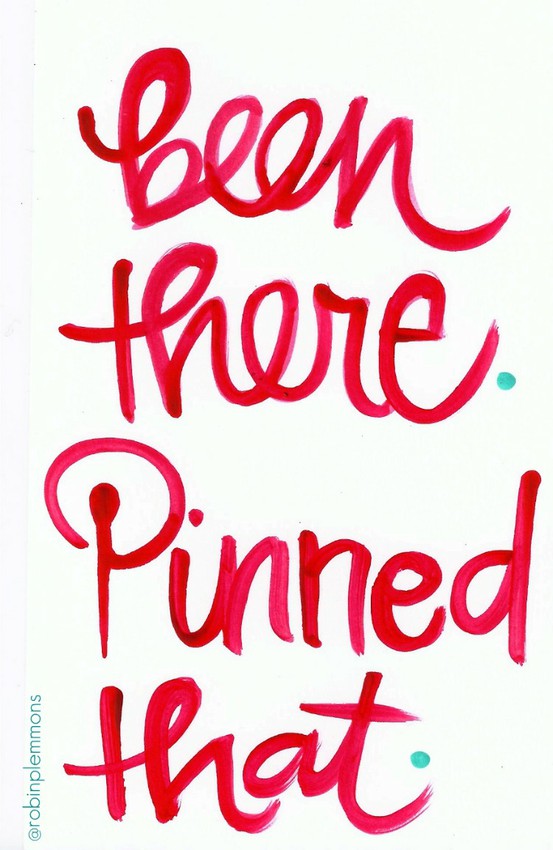 been
there.
Pinned
that.
@robinplemmons